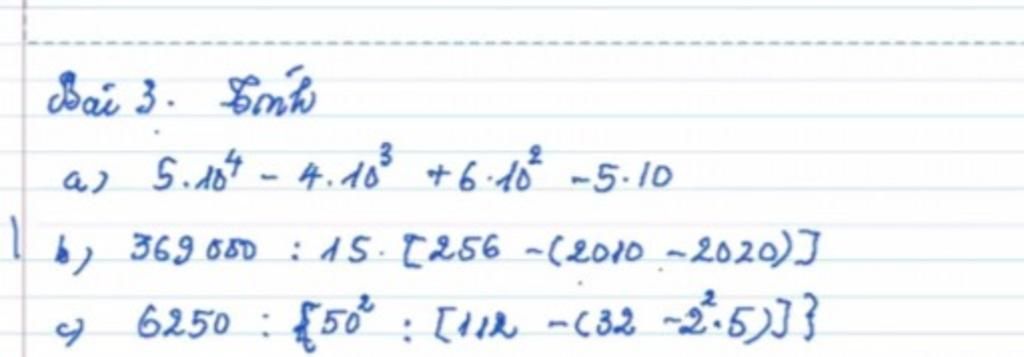 Bài 3. Tính
a) 5.10⁴ - 4.10³ + 6.10² - 5.10
b) 369 000 : 15. [256 - (2010 - 2020)]
c) 6250 : {50² : [112 - (32 - 2².5)]}